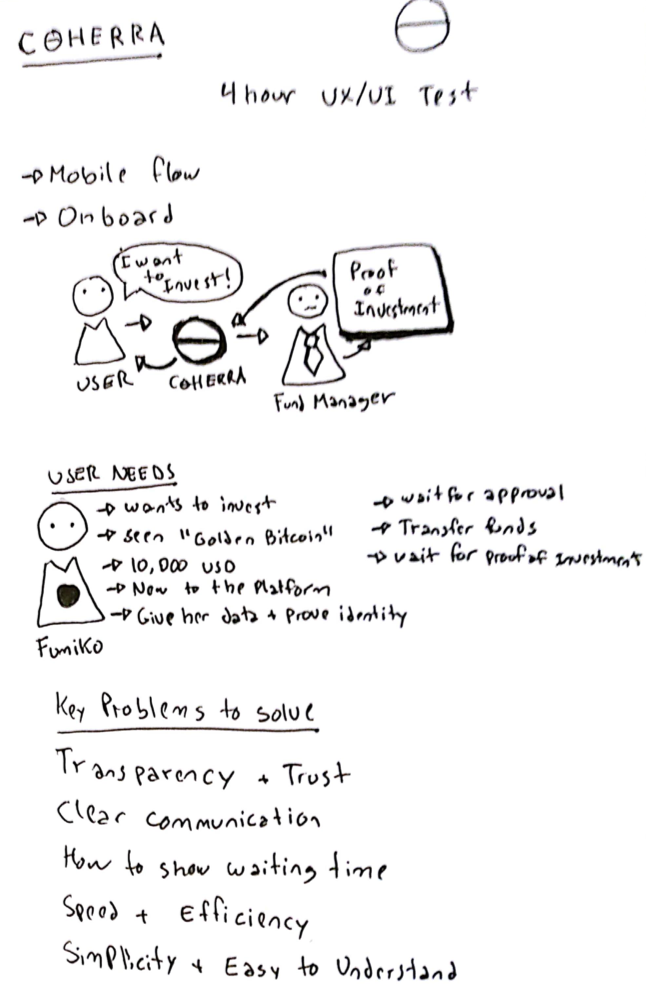 COHERRA
4 hour UX/UI Test
Mobile flow
Onboard
I want
to Invest!
Proof
of
Investment
USER
COHERRA
Fund Manager
USER NEEDS
wants to invest
seen "Golden Bitcoin"
10,000 USD
New to the Platform
Give her data + Prove identity
Fumiko
wait for approval
Transfer funds
wait for proof of Investment
Key Problems to solve
Transparency + Trust
Clear communication
How to show waiting time
Speed + Efficiency
Simplicity + Easy to Understand